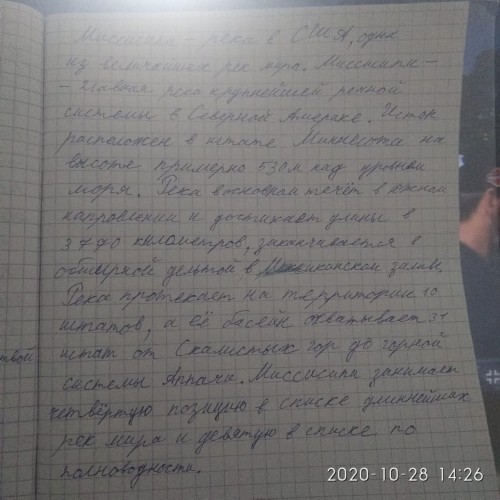 Миссисипи - река в США, одна
из величайших рек мира. Миссисипи -
- главная река крупнейшей речной
системы в Северной Америке. Исток
расположен в штате Миннесота на
высоте примерно 530 м над уровнем
моря. Река в основном течёт в южном
напровлении и достигает длины в
3770 километров, заканчивается в
обширной дельтой в Мексиканском залив.
Река протекает на территории 10
штатов, а её басейн охватывает 31
штат от Скалистых гор до горной
системы Аппача. Миссисипи занимает
четвёртую позицию в списке длиннейших
рек мира и девятую в списке по
полноводности.
твой
2020-10-28 14:26